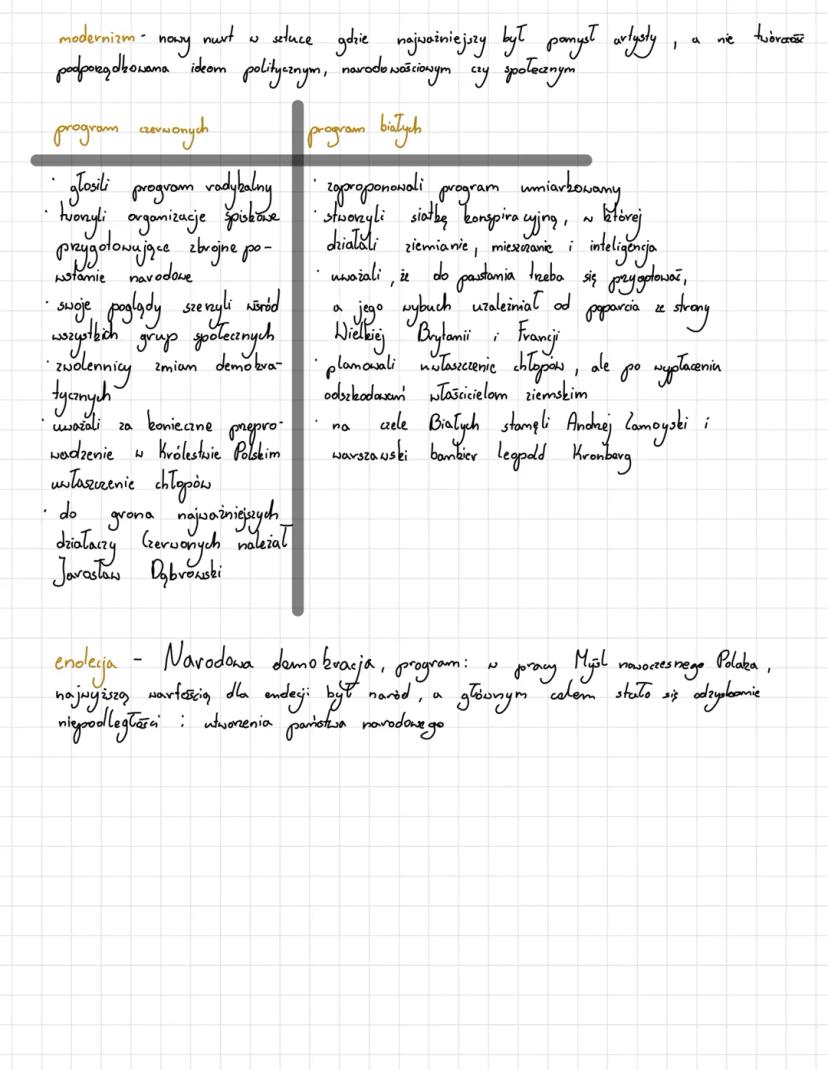 modernizm - nowy nurt w sztuce gdzie najważniejszy był pomysł artysty, a nie twórczość
podporządkowana ideom politycznym, narodowościowym czy społecznym
program czerwonych
· głosili program radykalny
· tworzyli organizacje spiskowe
przygotowujące zbrojne po-
wstanie narodowe
· swoje poglądy szerzyli wśród
wszystkich grup społecznych
· zwolennicy zmian demokra-
tycznych
· uważali za konieczne przepro-
wadzenie w Królestwie Polskim
uwłaszczenie chłopów
· do grona najważniejszych
działaczy Czerwonych należał
Jarosław Dąbrowski
program białych
· zaproponowali program umiarkowany
· stworzyli siatkę konspiracyjną, w której
działali ziemianie, mieszczanie i inteligencja
· uważali, że do powstania trzeba się przygotować,
a jego wybuch uzależniał od poparcia ze strony
Wielkiej Brytanii i Francji
· planowali uwłaszczenie chłopów, ale po wypłaceniu
odszkodowań właścicielom ziemskim
· na czele Białych stanęli Andrzej Zamoyski i
warszawski bankier Leopold Kronberg
endecja - Narodowa demokracja, program: w pracy Myśl nowoczesnego Polaka,
najwyższą wartością dla endecji był naród, a głównym celem stało się odzyskanie
niepodległości i utworzenia państwa narodowego